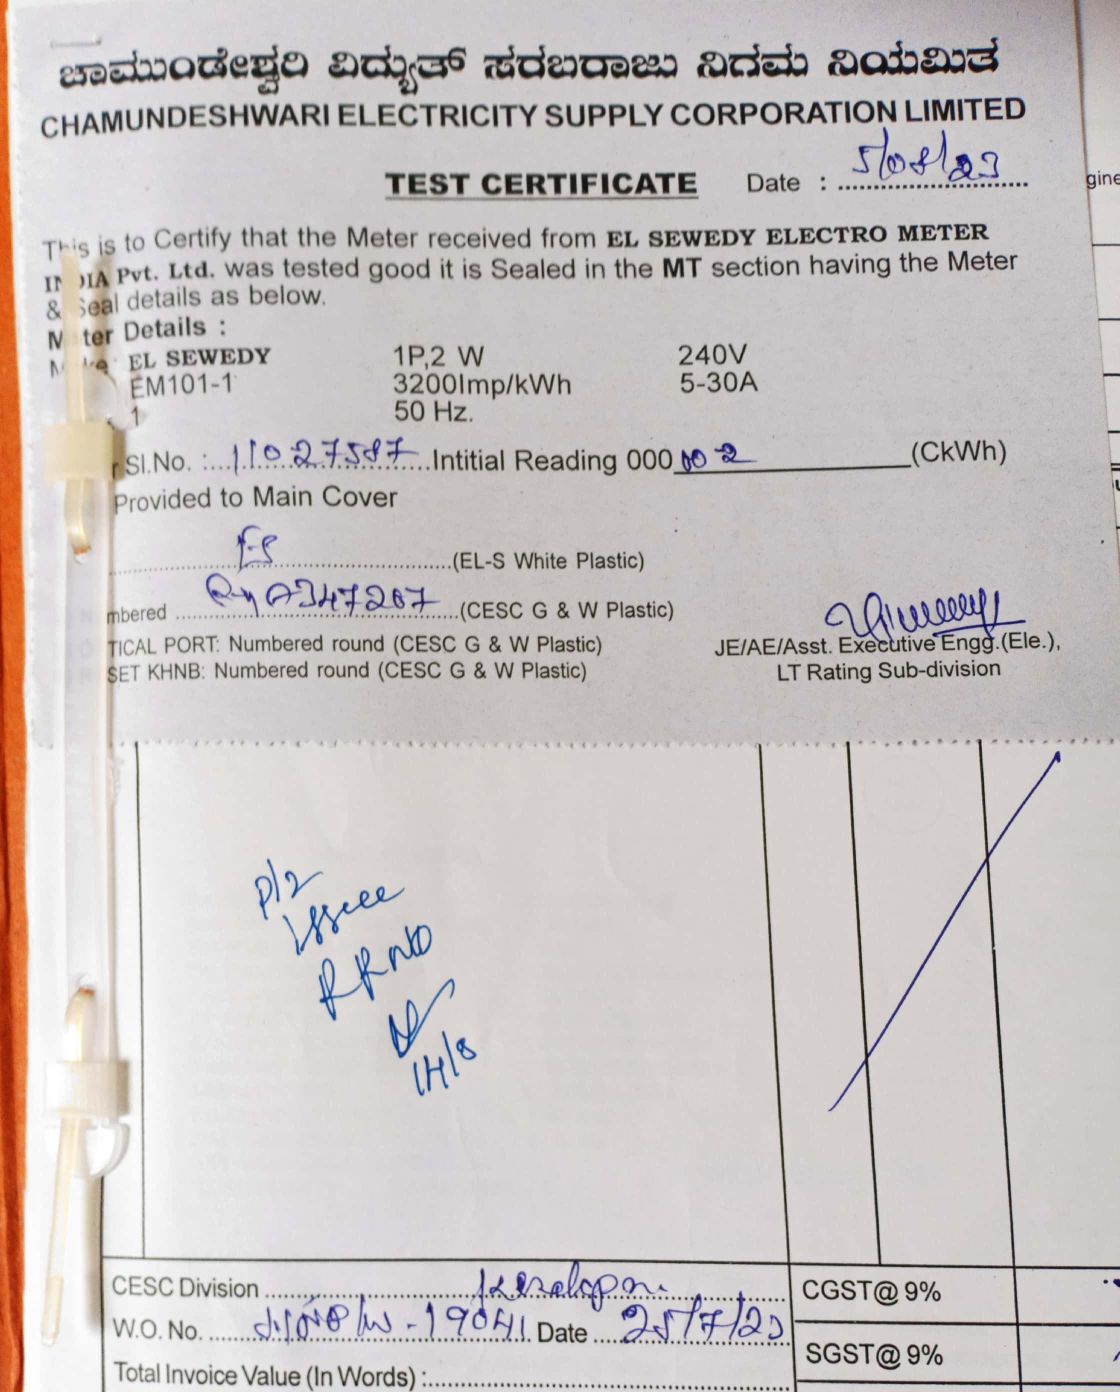 ಚಾಮುಂಡೇಶ್ವರಿ ವಿದ್ಯುತ್ ಸರಬರಾಜು ನಿಗಮ ನಿಯಮಿತ
CHAMUNDESHWARI ELECTRICITY SUPPLY CORPORATION LIMITED
TEST CERTIFICATE Date : 5/08/23
gine
This is to Certify that the Meter received from EL SEWEDY ELECTRO METER
INDIA Pvt. Ltd. was tested good it is Sealed in the MT section having the Meter
& Seal details as below.
Meter Details :
Make EL SEWEDY 1P,2 W 240V
EM101-1 3200Imp/kWh 5-30A
1 50 Hz.
r Sl.No. : 11027587 Intitial Reading 000 00 2 (CkWh)
Provided to Main Cover
ES (EL-S White Plastic)
mbered A347267 (CESC G & W Plastic)
TICAL PORT: Numbered round (CESC G & W Plastic)
SET KHNB: Numbered round (CESC G & W Plastic)
JE/AE/Asst. Executive Engg.(Ele.),
LT Rating Sub-division
P/2
Issue
RRNO
14/8
CESC Division CGST@ 9%
W.O. No. - 19041 Date 25/7/23
SGST@ 9%
Total Invoice Value (In Words) :